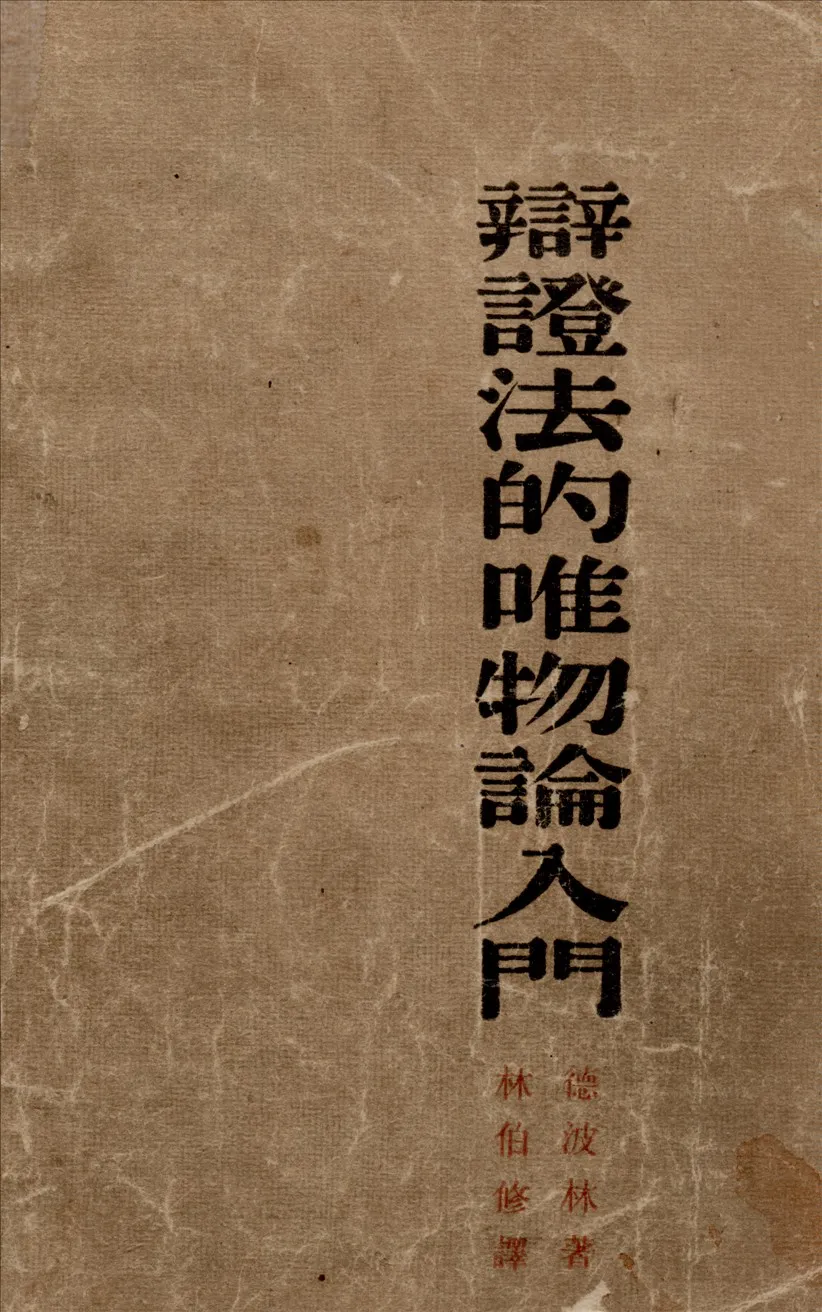 辯證法的唯物論入門
德波林著
林伯修譯